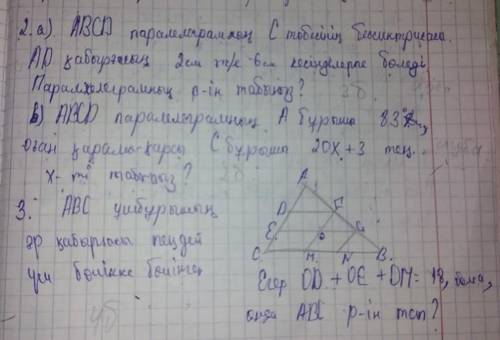 2. a) ABCD параллелограмның C төбесінің биссектрисасы
AD қабырғасын 2см және 6см кесінділерге бөледі
Параллелограмның p-ін табыңыз?
b) ABCD параллелограмның A бұрышы 83°,
оған қарама-қарсы C бұрышы 20x+3 тең.
x-ті табыңыз?
3. ABC үшбұрышының
әр қабырғасы теңдей
үш бөлікке бөлінген
A
D F
E O G
C M N B.
Егер OD + OE + OM = 18, болса,
онда ABC p-ін тап?